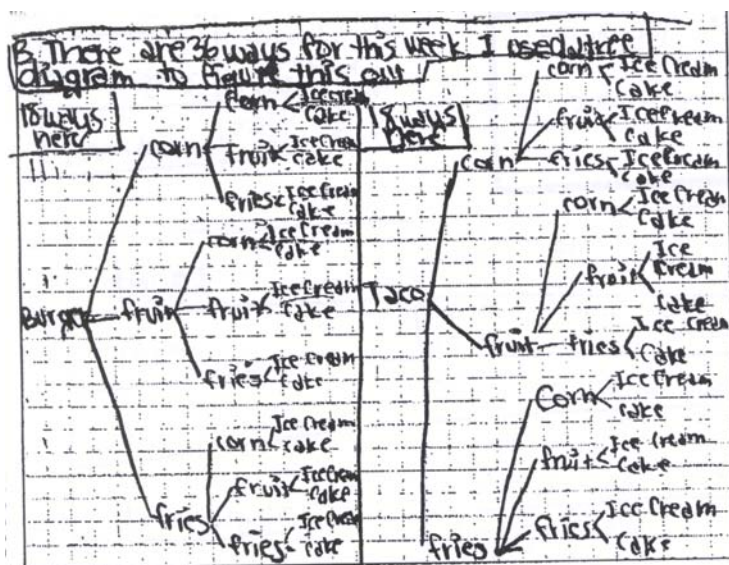 B. There are 36 ways for this week I used a tree
diagram to figure this out
18 ways
here
Burger
corn
corn Ice cream
cake
fruit Ice Cream
cake
fries Ice Cream
cake
fruit
corn Ice Cream
cake
fruit Ice Cream
cake
fries Ice Cream
cake
fries
corn Ice Cream
cake
fruit Ice Cream
cake
fries Ice Cream
cake
18 ways
here
Taco
corn
corn Ice Cream
cake
fruit Ice Cream
cake
fries Ice Cream
cake
fruit
corn Ice Cream
cake
fruit Ice
Cream
cake
fries Ice Cream
cake
fries
Corn Ice Cream
cake
fruit Ice Cream
cake
fries Ice Cream
Cake